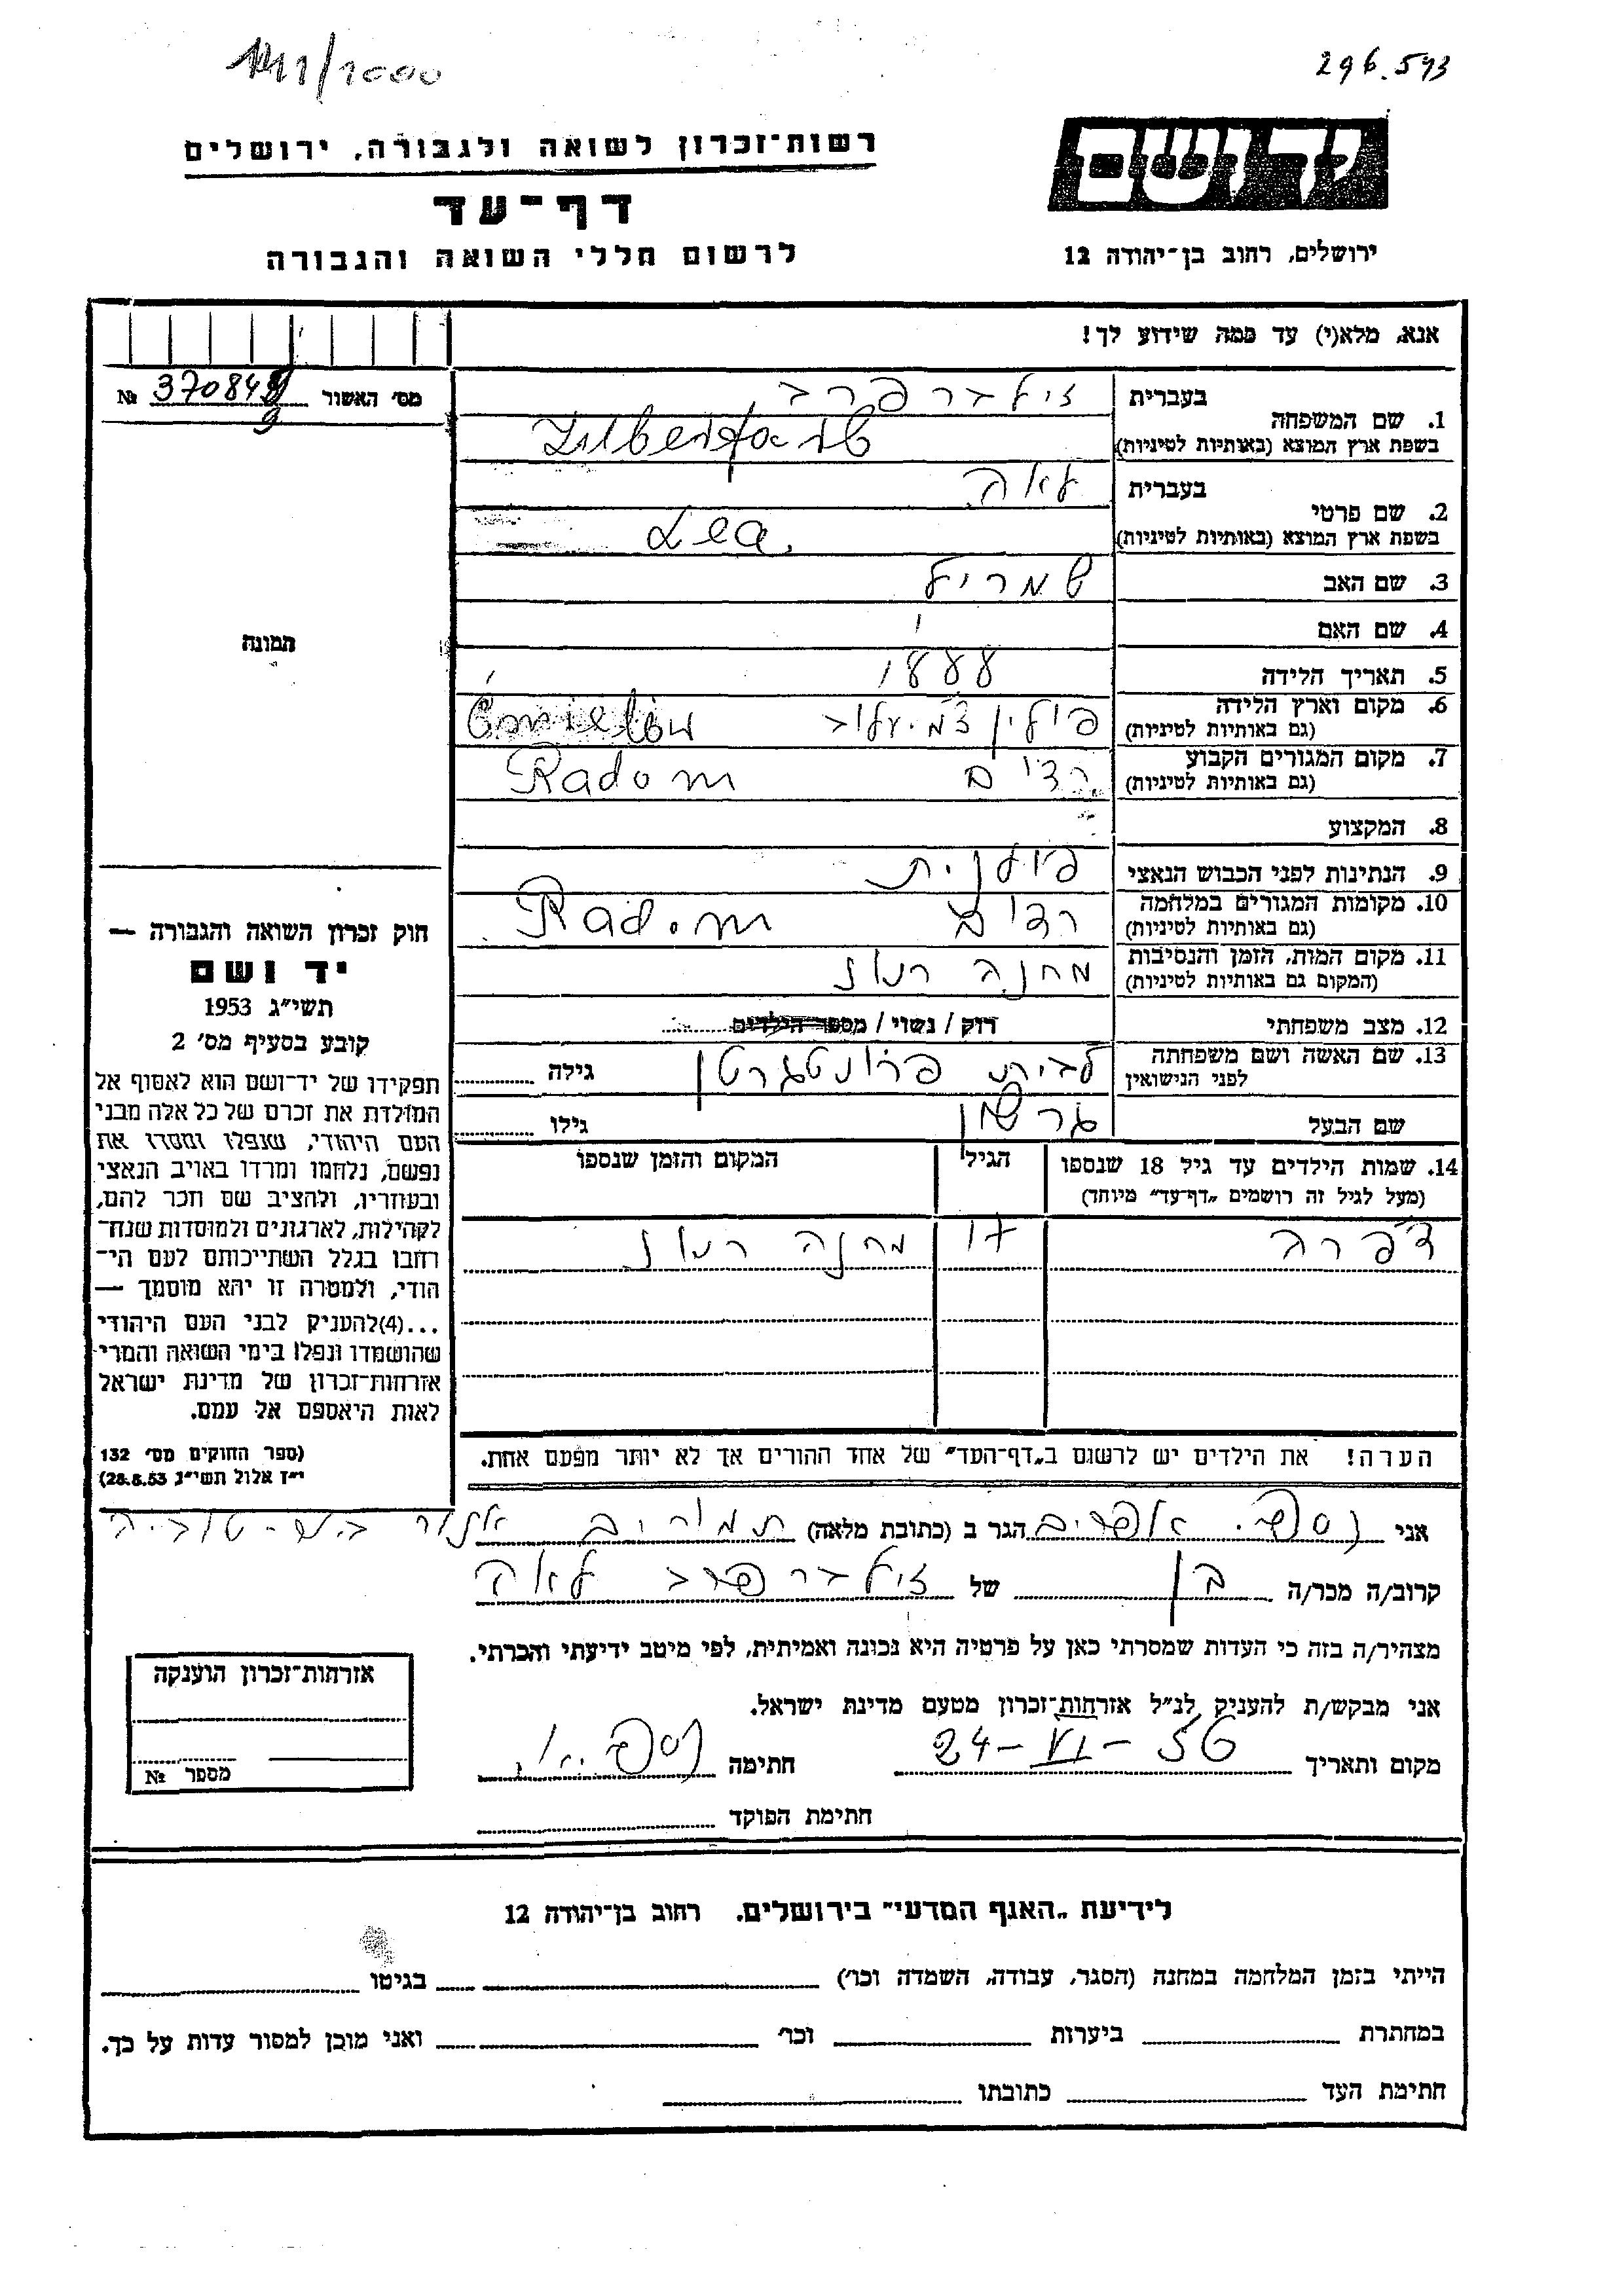 141/1000
296.593
רשות־זכרון לשואה ולגבורה, ירושלים
דף־עד
לרשום חללי השואה והגבורה
יד ושם
ירושלים, רחוב בן־יהודה 12
אנא, מלא(י) עד כמה שידוע לך!
מס׳ האשור № 370849
1. שם המשפחה בעברית זילברפרב
בשפת ארץ המוצא (באותיות לטיניות) Zilberfarb
2. שם פרטי בעברית לאה
בשפת ארץ המוצא (באותיות לטיניות) Lea
3. שם האב שמריל
4. שם האם
5. תאריך הלידה 1888
6. מקום וארץ הלידה (גם באותיות לטיניות) פולין צ׳מילוב Ćmielów
7. מקום המגורים הקבוע (גם באותיות לטיניות) רדום Radom
8. המקצוע
9. הנתינות לפני הכבוש הנאצי פולנית
10. מקומות המגורים במלחמה (גם באותיות לטיניות) רדום Radom
11. מקום המות, הזמן והנסיבות (המקום גם באותיות לטיניות) מחנה
12. מצב משפחתי רוק / נשוי / מספר הילדים
13. שם האשה ושם משפחתה לפני הנישואין לבית גילה
שם הבעל גרשון גילו
14. שמות הילדים עד גיל 18 שנספו (מעל לגיל זה רושמים „דף־עד” מיוחד)
הגיל
המקום והזמן שנספו
17 מחנה
הערה! את הילדים יש לרשום ב„דף־העד” של אחד ההורים אך לא יותר מפעם אחת.
תמונה
חוק זכרון השואה והגבורה —
יד ושם
תשי״ג 1953
קובע בסעיף מס׳ 2
תפקידו של יד־ושם הוא לאסוף אל
המולדת את זכרם של כל אלה מבני
העם היהודי, שנפלו ומסרו את
נפשם, נלחמו ומרדו באויב הנאצי
ובעוזריו, ולהציב שם וזכר להם,
לקהילות, לארגונים ולמוסדות שנח־
רחבו בגלל השתייכותם לעם הי־
הודי, ולמטרה זו יהא מוסמך —
...(4)להעניק לבני העם היהודי
שהושמדו ונפלו בימי השואה והמרי
אזרחות־זכרון של מדינת ישראל
לאות היאספם אל עמם.
(ספר החוקים מס׳ 132
י״ז אלול תשי״ג 28.8.53)
אני אפרים הגר ב (כתובת מלאה) תמורים אזור באר-טוביה
קרוב/ה מכר/ה בן של זילברפרב לאה
מצהיר/ה בזה כי העדות שמסרתי כאן על פרטיה היא נכונה ואמיתית, לפי מיטב ידיעתי והכרתי.
אני מבקש/ת להעניק לנ״ל אזרחות־זכרון מטעם מדינת ישראל.
מקום ותאריך 24-VI-56 חתימה
חתימת הפוקד
אזרחות־זכרון הוענקה
מספר №
לידיעת „האגף המדעי” בירושלים. רחוב בן־יהודה 12
הייתי בזמן המלחמה במחנה (הסגר, עבודה, השמדה וכו׳) בגיטו
במחתרת ביערות וכו׳ ואני מוכן למסור עדות על כך.
חתימת העד כתובתו